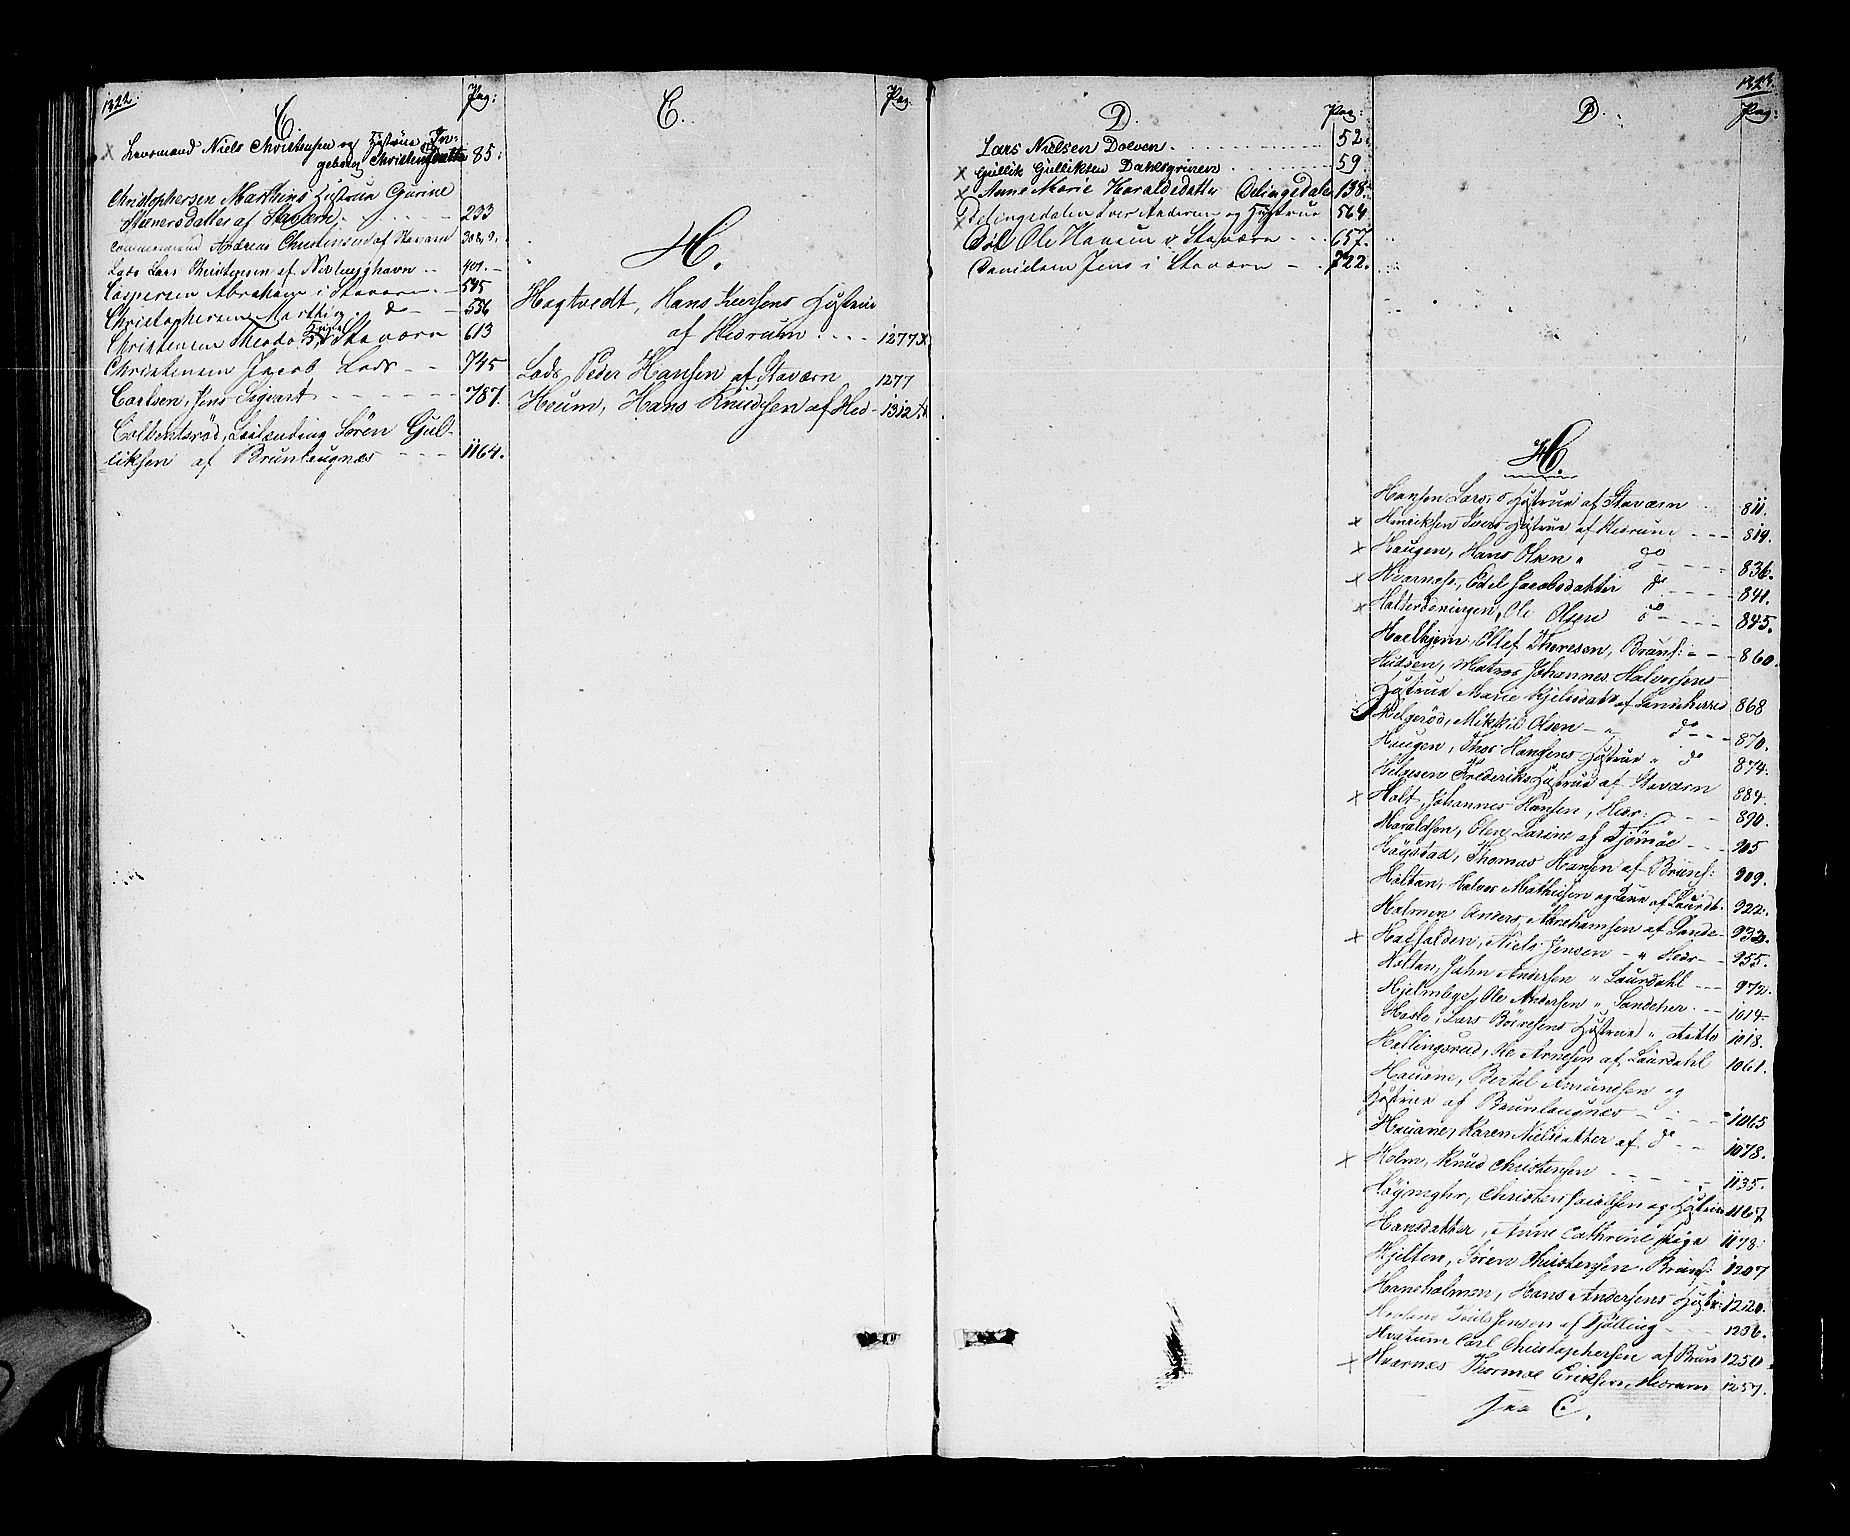 1322.
C.
Pag:
x Lensmand Niels Christensen og Hustrue In-
geborg Christensdatter 85.
Christophersen Mathias Hustrue Gurine
Steenersdatter af Stavern. 233
Andreas Christensen af Stavern 308, 9.
Lods Lars Christensen af Nevlunghavn 401.
Caspersen Abraham i Stavern. 545
Christophersen Mathias do 556
Christensen Stavern 613
Christensen Jacob Lods 745
Carlsen, Jens Sigvart 787.
Colbentsrød, Søren Gul-
liksen af Brunlaugnæs 1164.
C.
Pag
H.
Hogtvedt, Hans Hustrue
af Hedrum 1277 x
Lods Peder Hansen af Stavern 1277
Heum, Hans Knudsen af Hed- 1312 x
D.
Pag:
Lars Nielsen Dolven 52.
x Gullik Gulliksen Dahlsgrinen 59.
x Anne Marie Haraldsdatter Delingsdalen 138.
x Delingsdalen Iver Andersen og Hustrue 564
Døl Ole Hansen i Stavern 657.
Davidsen Jens i Stavern 722.
1323.
D.
Pag:
H.
Hansen Lars, s Hustrue af Stavern 811.
x Henriksen Ivers Hustrue af Hedrum 819.
x Haugen, Hans Olsen " do 836.
x Hvarnæs, Edel Jacobsdatter do 841.
x Ole Olsen do 845.
Ollef Thoresen, Brunl: 860.
Matros Johannes Halvorsens
Hustrue Marie af Sandeherred 868
Helgerød, Mikkel Olsen " do 870.
Haugen, Thor Hansens Hustrue " do 874.
Helgesen Frederiks Hustrue af Stavern 884.
x Holt, Johannes Hansen, Hedr: 890.
Haraldsen, Oline Larine af Tjømøe 905
Høystad, Thomas Hansen af Brunl: 909.
Holtan, Halvor Mathisen og Kone af Laurdl. 922.
Holmen Anders Abrahamsen af Sande- 932.
x Niels Jensen " Hedr 955.
Holtan, John Andersen " Laurdahl 972.
Ole Andersen " Sandeher 1014
Hasle, Lars Hustrue " ditto 1018.
Hellingsrud, Ole Arnesen af Laurdahl 1061.
Hauane, Bertel Amundsen og
Hustrue af Brunlaugnæs 1065
Hauane, Karen Nielsdatter af do 1078.
x Holm, Knud Christensen 1135.
Christen og Hustrue 1167
Hansdatter, Anne Cathrine Pige 1178.
Hjelten, Søren Christensen Brunl: 1207
Haneholmen, Hans Andersens Hustr: 1220.
Jensen af Tjølling 1236.
Carl Christophersen af Brun 1250.
x Hvarnæs Thormoe Eriksen, Hedrum 1257.
see C.